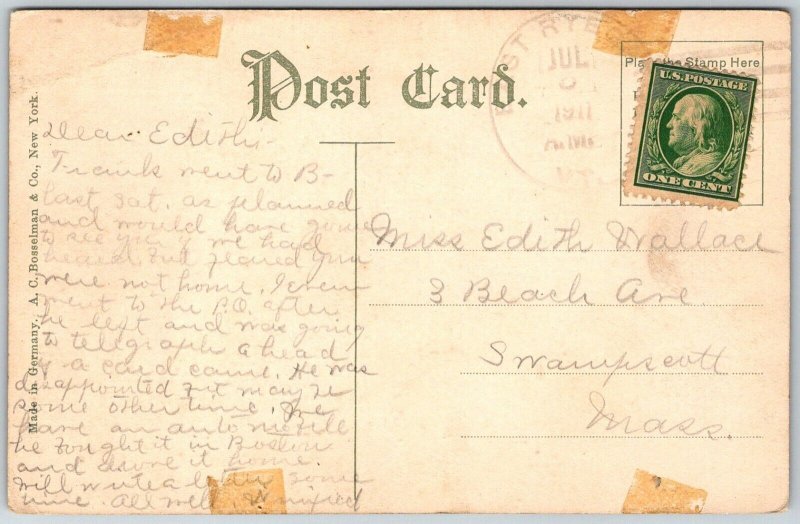 Post Card.
Made in Germany. A. C. Bosselman & Co., New York.
Place the Stamp Here
U.S. POSTAGE
ONE CENT
EAST RYE
JUL
1911
A.M.
Dear Edith:-
Frank went to B-
last Sat. as planned
and would have gone
to see you if we had
heard, but feared you
were not home. I even
went to the P.O. after
he left and was going
to telegraph ahead
if a card came. He was
disappointed but maybe
some other time. We
have an automobile
he bought it in Boston
and drove it home
will write a letter some
time. All well,
Miss Edith Wallace
3 Beach Ave.
Swampscott
Mass.